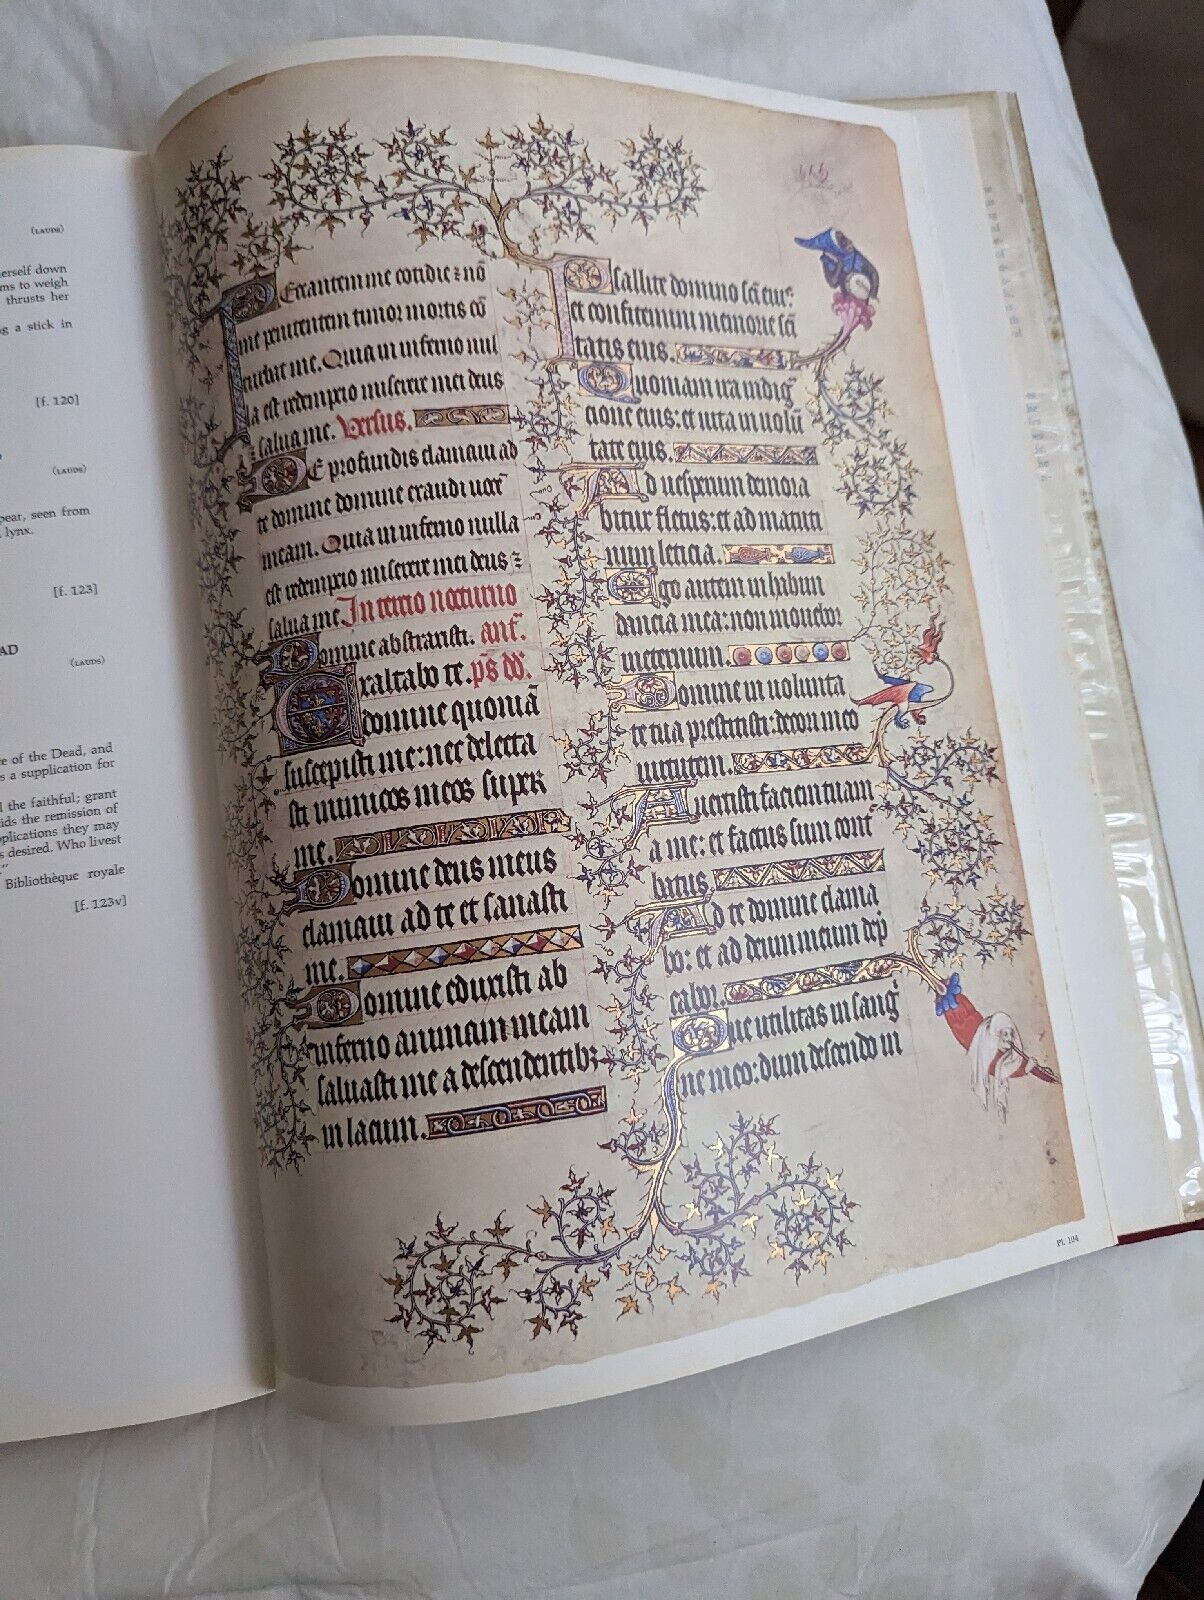 (LAUDS)
erself down
ms to weigh
thrusts her
g a stick in
[f. 120]
(LAUDS)
pear, seen from
lynx.
[f. 123]
AD
(LAUDS)
e of the Dead, and
s a supplication for
l the faithful; grant
ids the remission of
pplications they may
s desired. Who livest
Bibliothèque royale
[f. 123v]
Peccantem me cotidie ⁊ nō
me penitentem timor mortis cō
turbat me. Quia in inferno nul
la est redempcio miserere mei deus
⁊ salua me. Versus.
De profundis clamaui ad
te domine domine exaudi uocē
meam. Quia in inferno nulla
est redempcio miserere mei deus ⁊
salua me In tercio nocturno
Domine abstraxisti. anī.
Exaltabo te. p̄s dd̄.
domine quoniā
suscepisti me: nec delecta
sti inimicos meos super
me.
Domine deus meus
clamaui ad te et sanasti
me.
Domine eduxisti ab
inferno animam meam
saluasti me a descendentibꝫ
in lacum.
Psallite domino sc̄i eius:
et confitemini memorie sc̄i
tatis eius.
Quoniam ira indig
cione eius: et uita in uolū
tate eius.
Ad uesperum demora
bitur fletus: et ad matuti
num leticia.
Ego autem in habun
dancia mea: non mouebor
in eternum.
Domine in uolunta
te tua prestitisti: decori meo
uirtutem.
Auertisti faciem tuam
a me: et factus sum cont
batus.
Ad te domine clama
bo: et ad deum meum dep̄
cabor.
Que utilitas in sang
ne meo: dum descendo in
Pl. 194